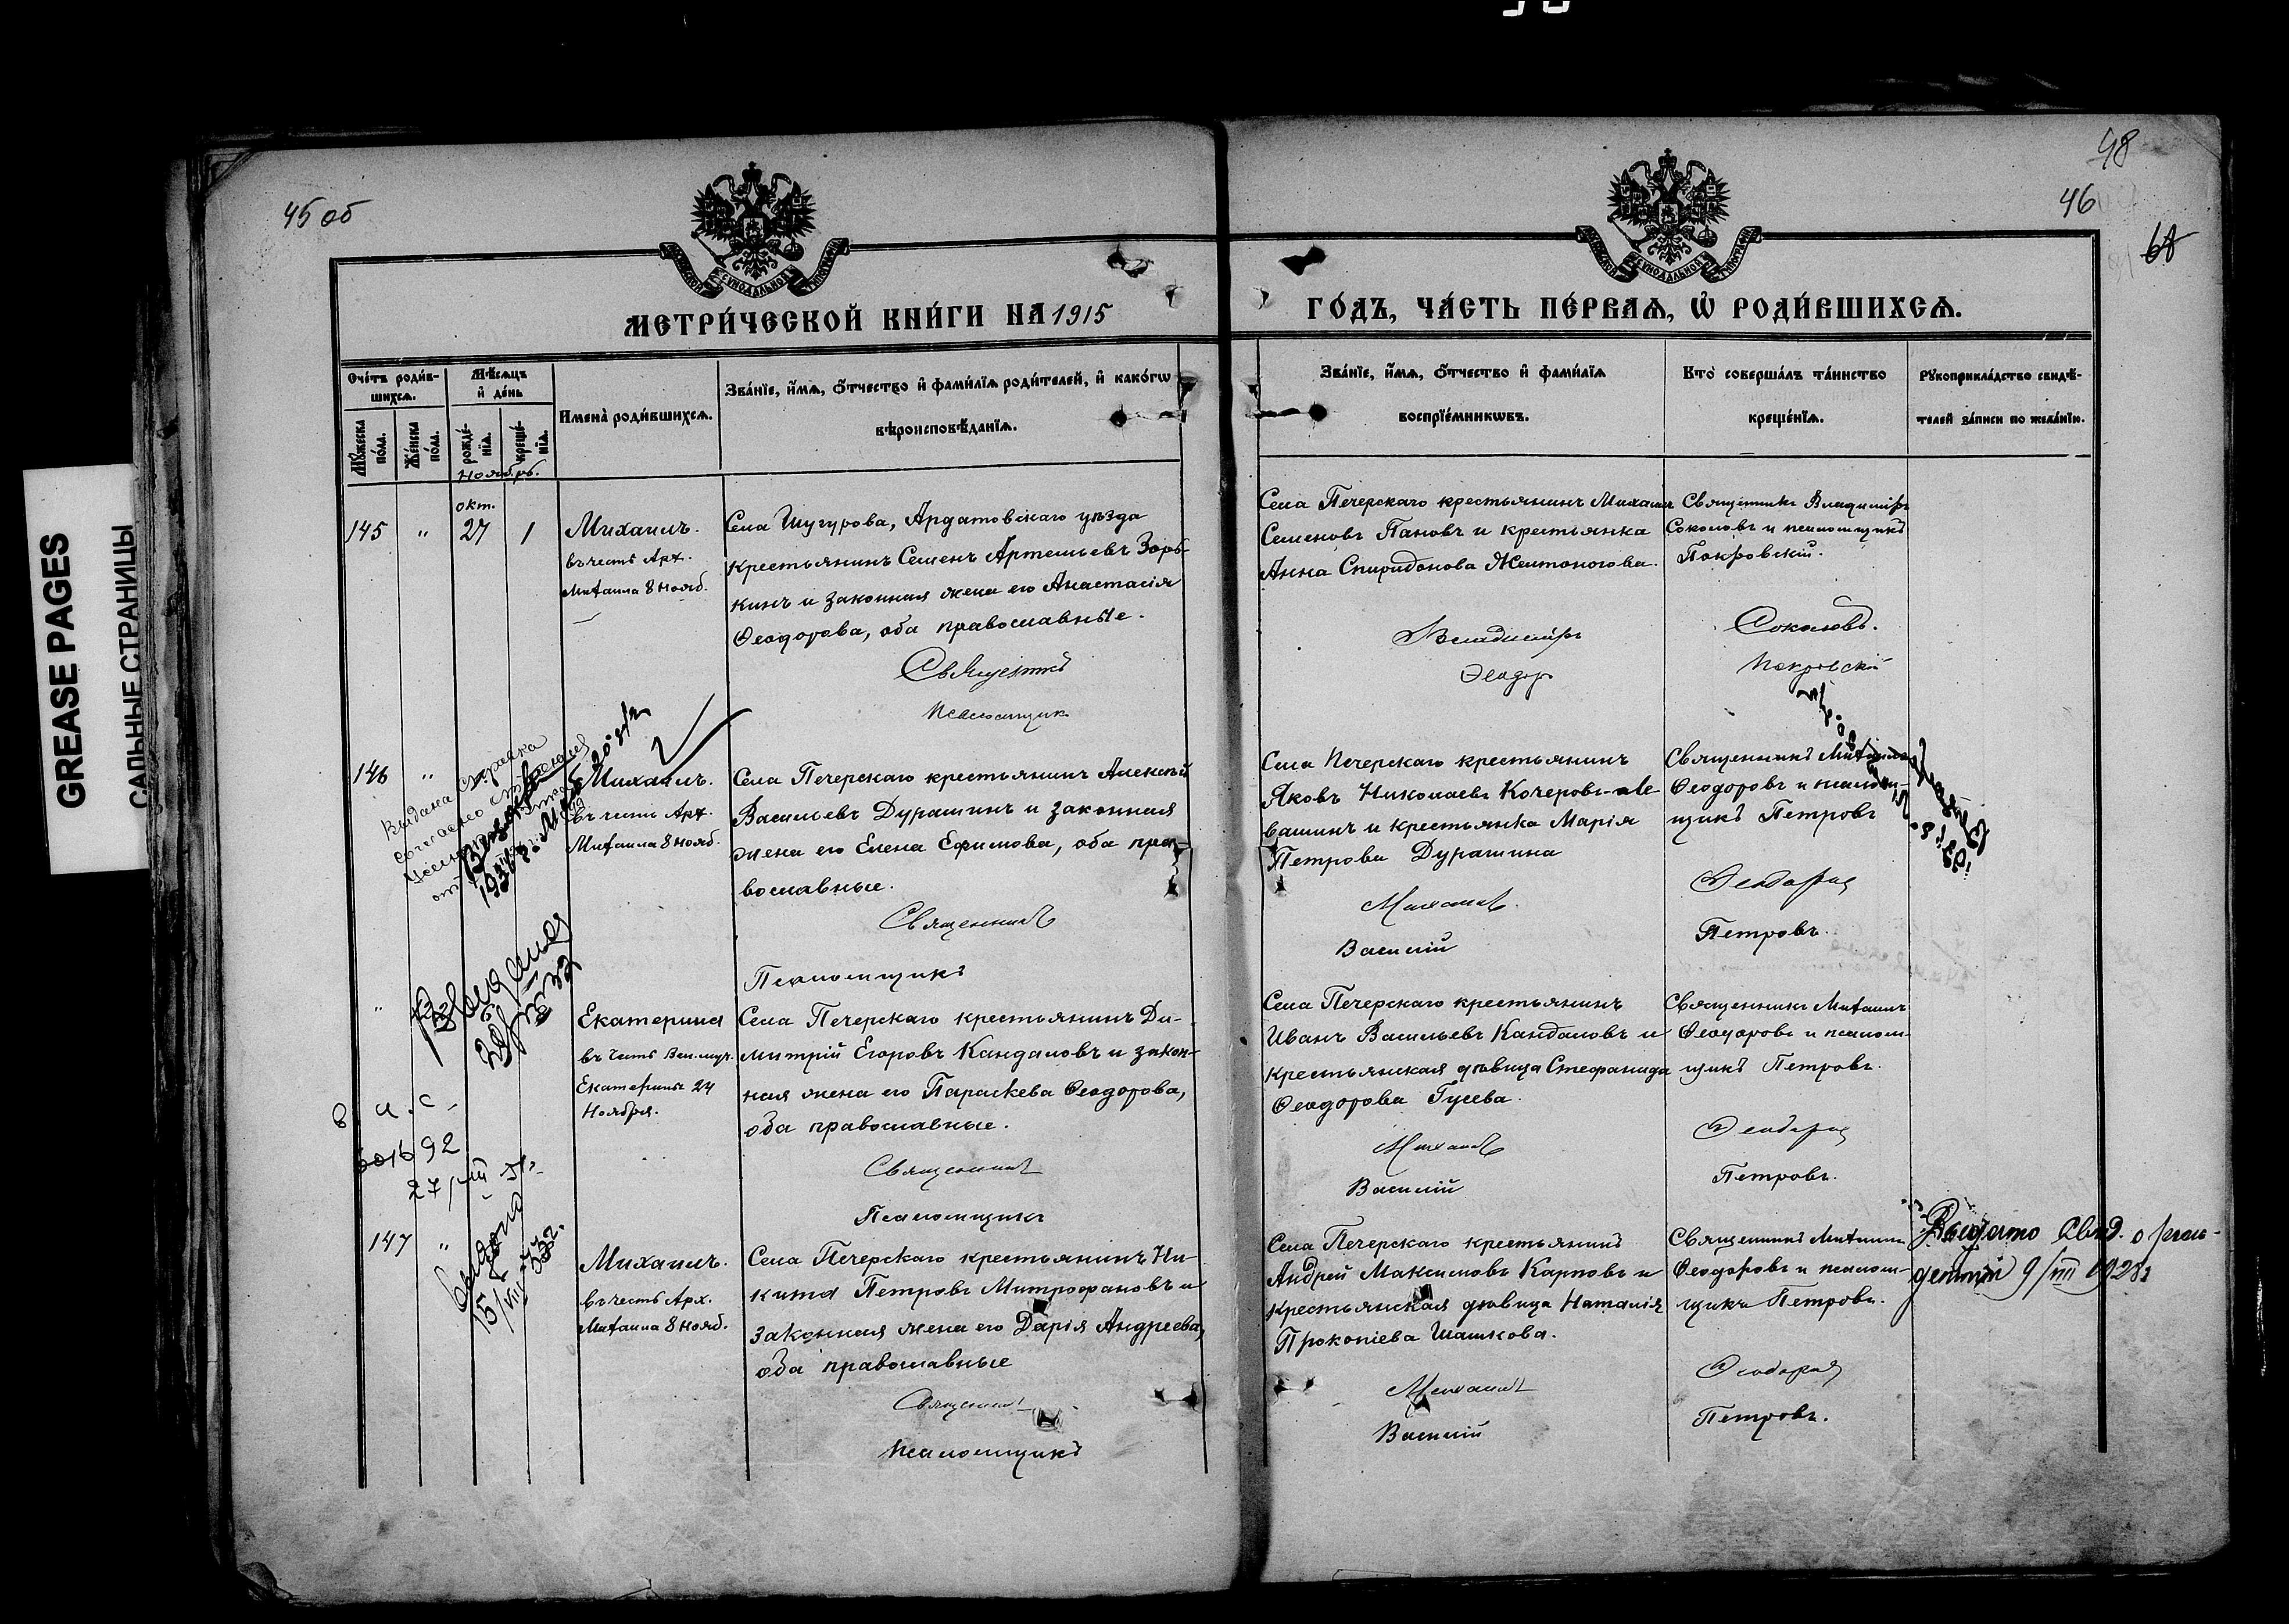 GREASE PAGES
САЛЬНЫЕ СТРАНИЦЫ
45 об
МЕТРИ́ЧЕСКОЙ КНИ́ГИ НА 1915
Сче́тъ роди́в-
шихсѧ.
Мѣ́сѧцъ
и҆ де́нь
Мꙋ́жеска
по́ла.
Же́нска
по́ла.
рожде́-
нїѧ.
креще́-
нїѧ.
Имена̀ роди́вшихсѧ.
Зва́нїе, и҆́мѧ, ѻ҆́тчество и҆ фами́лїѧ роди́телей, и҆ како́гѡ
вѣроисповѣ́данїѧ.
Ноябрь.
окт.
145 " 27 1
Михаилъ.
въ честь Арх.
Михаила 8 нояб.
Села Шугурова, Ардатовскаго уѣзда
крестьянинъ Семенъ Артемьевъ Зорь-
кинъ и законная жена его Анастасія
Ѳеодорова, оба православные.
Священникъ
Псаломщик
146 "
Выдана справка
согласно
от
Михаилъ.
въ честь Арх.
Михаила 8 нояб.
Села Печерскаго крестьянинъ Алексѣй
Васильевъ Дурашинъ и законная
жена его Елена Ефимова, оба пра-
вославные.
Священникъ
Псаломщикъ
"
Екатерина
въ честь Вел.муч.
Екатерины 24
Ноября.
Села Печерскаго крестьянинъ Ди-
митрій Егоровъ Кандаловъ и закон-
ная жена его Параскева Ѳеодорова,
оба православные.
Священникъ
Псаломщикъ
92
27/VIII
147 "
Михаилъ.
въ честь Арх.
Михаила 8 нояб.
Села Печерскаго крестьянинъ Ни-
кита Петровъ Митрофановъ и
законная жена его Дарія Андреева,
оба православные
Священникъ
Псаломщикъ
48
46
68
ГО́ДЪ, ЧА́СТЬ ПЕ́РВАѦ, Ѡ҆ РОДИ́ВШИХСѦ.
Зва́нїе, и҆́мѧ, ѻ҆́тчество и҆ фами́лїѧ
воспрїе́мникѡвъ.
Кто̀ соверша́лъ та́инство
креще́нїѧ.
Рꙋкоприкла́дство свидѣ́-
телей за́писи по жела́нїю.
Села Печерскаго крестьянинъ Михаилъ
Семеновъ Пановъ и крестьянка
Анна Спиридонова Желтоногова.
Владиміръ
Ѳеодоръ
Священникъ Владиміръ
Соколовъ и псаломщикъ
Покровскій.
Соколовъ.
Покровскій
Села Печерскаго крестьянинъ
Яковъ Николаевъ Кочеровъ-Ле-
вашинъ и крестьянка Марія
Петрова Дурашина
Михаилъ
Василій
Священникъ Михаилъ
Ѳеодоровъ и псалом-
щикъ Петровъ
Ѳеодоровъ
Петровъ.
Села Печерскаго крестьянинъ
Иванъ Васильевъ Кандаловъ и
крестьянская дѣвица Стефанида
Ѳеодорова Гусева.
Михаилъ
Василій
Священникъ Михаилъ
Ѳеодоровъ и псалом-
щикъ Петровъ.
Ѳеодоровъ
Петровъ.
Села Печерскаго крестьянинъ
Андрей Максимовъ Карповъ и
крестьянская дѣвица Наталія
Прокопіева Шашкова.
Михаилъ
Василій
Священникъ Михаилъ
Ѳеодоровъ и псалом-
щикъ Петровъ.
Ѳеодоровъ
Петровъ.
Выдано Свид. о рож-
дении 9/III 1928г